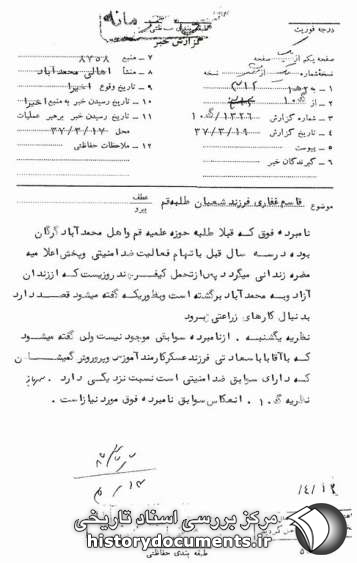 درجه فوریت
محرمانه
گزارش خبر
صفحه یکم از یک صفحه
نسخه شماره از نسخه
۲ – از گ ۱۰
۳ – شماره گزارش ۱۳۲۶/گ۱۰
۴ – تاریخ گزارش ۳۷/۳/۱۹
۵ – پیوست
۶ – گیرندگان خبر
۷ – منبع ۸۷۵۸
۸ – منشأ اهالی محمدآباد
۹ – تاریخ وقوع اخیرا
۱۰ – تاریخ رسیدن خبر به منبع اخیرا
۱۱ – تاریخ رسیدن خبر برهبر عملیات
محل ۳۷/۳/۱۷
۱۲ – ملاحظات حفاظتی
موضوع قاسم غفاری فرزند شعبان طلبه قم
عطف
پیرو
نامبرده فوق که قبلا طلبه حوزه علمیه قم و اهل محمد آباد گرگان
بوده در سه سال قبل باتهام فعالیت ضد امنیتی و پخش اعلامیه
مضره زندانی میگردد پس از تحمل کیفر چند روزیست که از زندان
آزاد و به محمدآباد برگشته است و بطوریکه گفته میشود قصد دارد
بدنبال کارهای زراعتی برود
نظریه یکشنبه . از نامبرده سوابقی موجود نیست ولی گفته میشود
که با آقابابا سعادتی فرزند عسکر کارمند آموزش و پرورش گمیشان
که دارای سوابق ضد امنیتی است نسبت نزدیکی دارد .
نظریه گ ۱۰ . انعکاس سوابق نامبرده فوق مورد نیاز است .
مرکز بررسی اسناد تاریخی
historydocuments.ir
طبقه بندی حفاظتی